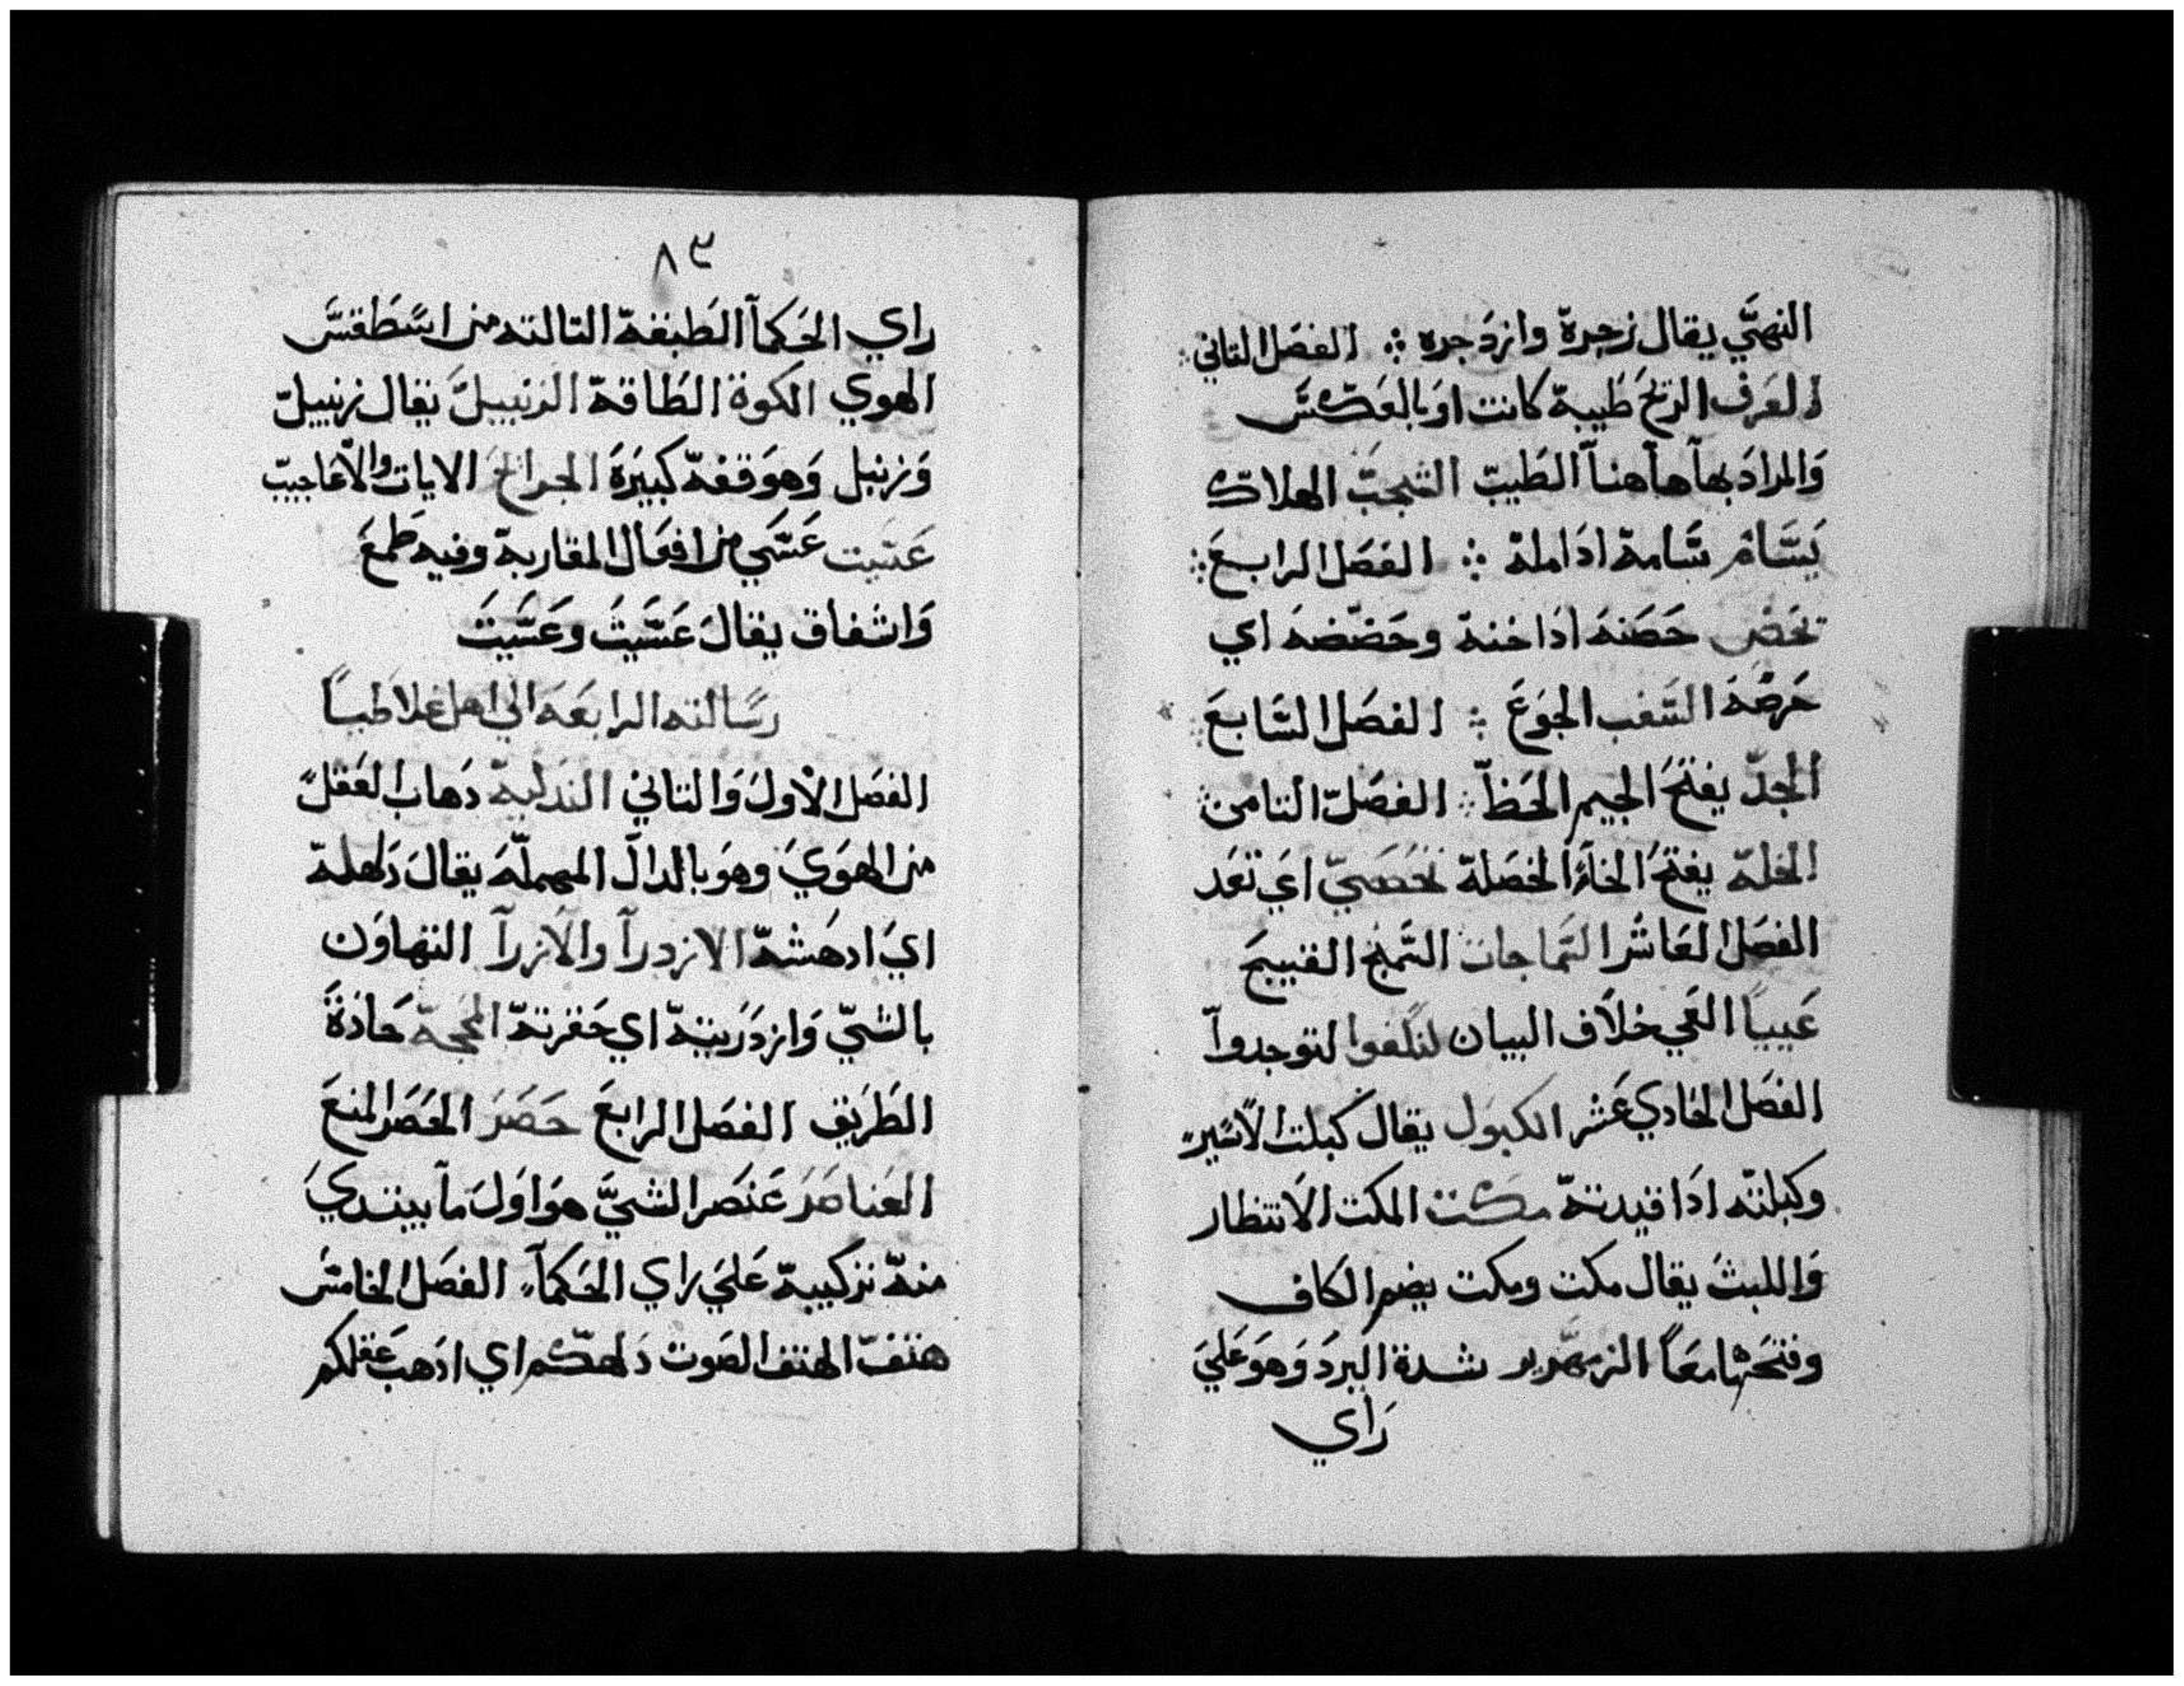 النهيّ يقال زجرة وازدجره ⁘ الفصل التاني
العرف الريح طيبة كانت او بالعكس
والمراد بها هاهنا الطيب الشجب الهلاك
يسام سامه اذا مله ⁘ الفصل الرابع
تحض حضنه اذا خنة وحضضه اي
حرضه السغب الجوع ⁘ الفصل السابع
الجد يفتح الجيم الحظ ⁘ الفصل التامن
الخلة يفتح الخاء الخصلة تحصي اي تعد
الفصل العاشر السماجات السمج القبيح
عيبيا العي خلاف البيان لتلفوا لتوجدوا
الفصل الحادي عشر الكبول يقال كبلت الاسير
وكبلته اذا قيدته مكت المكت الانتظار
واللبث يقال مكت ومكت بضم الكاف
وفتحها معا الزمهرير شدة البرد وهو علي
راي
٨٣
راي الحكما الطبقة التالته من اسطقس
الهوي الكوة الطاقة الزنبيل يقال زنبيل
وزنبل وهو قفة كبيرة الجرائح الايات والاعاجيب
عسيت عسي من افعال المقاربة وفيه طمع
واشفاق يقال عسيت وعسيت
رسالته الرابعه الي اهل غلاطيا
الفصل الاول والتاني التدليه دهاب العقل
من الهوي وهو بالدال المهمله يقال دلهله
اي ادهشه الازدرا والازرا التهاون
بالشي وازدريته اي حقرته المحجة حادة
الطريق الفصل الرابع حصر الحصر المنع
العناصر عنصر الشي هو اول ما يبتدي
منه تركيبة علي راي الحكما الفصل الخامس
هتف الهتف الصوت دلهكم اي ادهب عقلكم